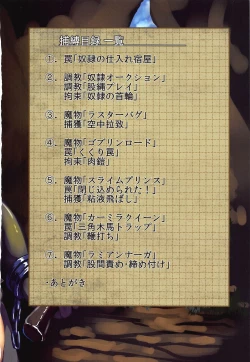 捕縛目録一覧
1. 罠「奴隷の仕入れ宿屋」
2. 調教「奴隷オークション」
調教「股縄プレイ」
拘束「奴隷の首輪」
3. 魔物「ラスターバグ」
捕獲「空中拉致」
4. 魔物「ゴブリンロード」
罠「くくり罠」
拘束「肉鎧」
5. 魔物「スライムプリンス」
罠「閉じ込められた!」
捕獲「粘液飛ばし」
6. 魔物「カーミラクイーン」
罠「三角木馬トラップ」
調教「鞭打ち」
7. 魔物「ラミアンナーガ」
調教「股間責め・締め付け」
・あとがき